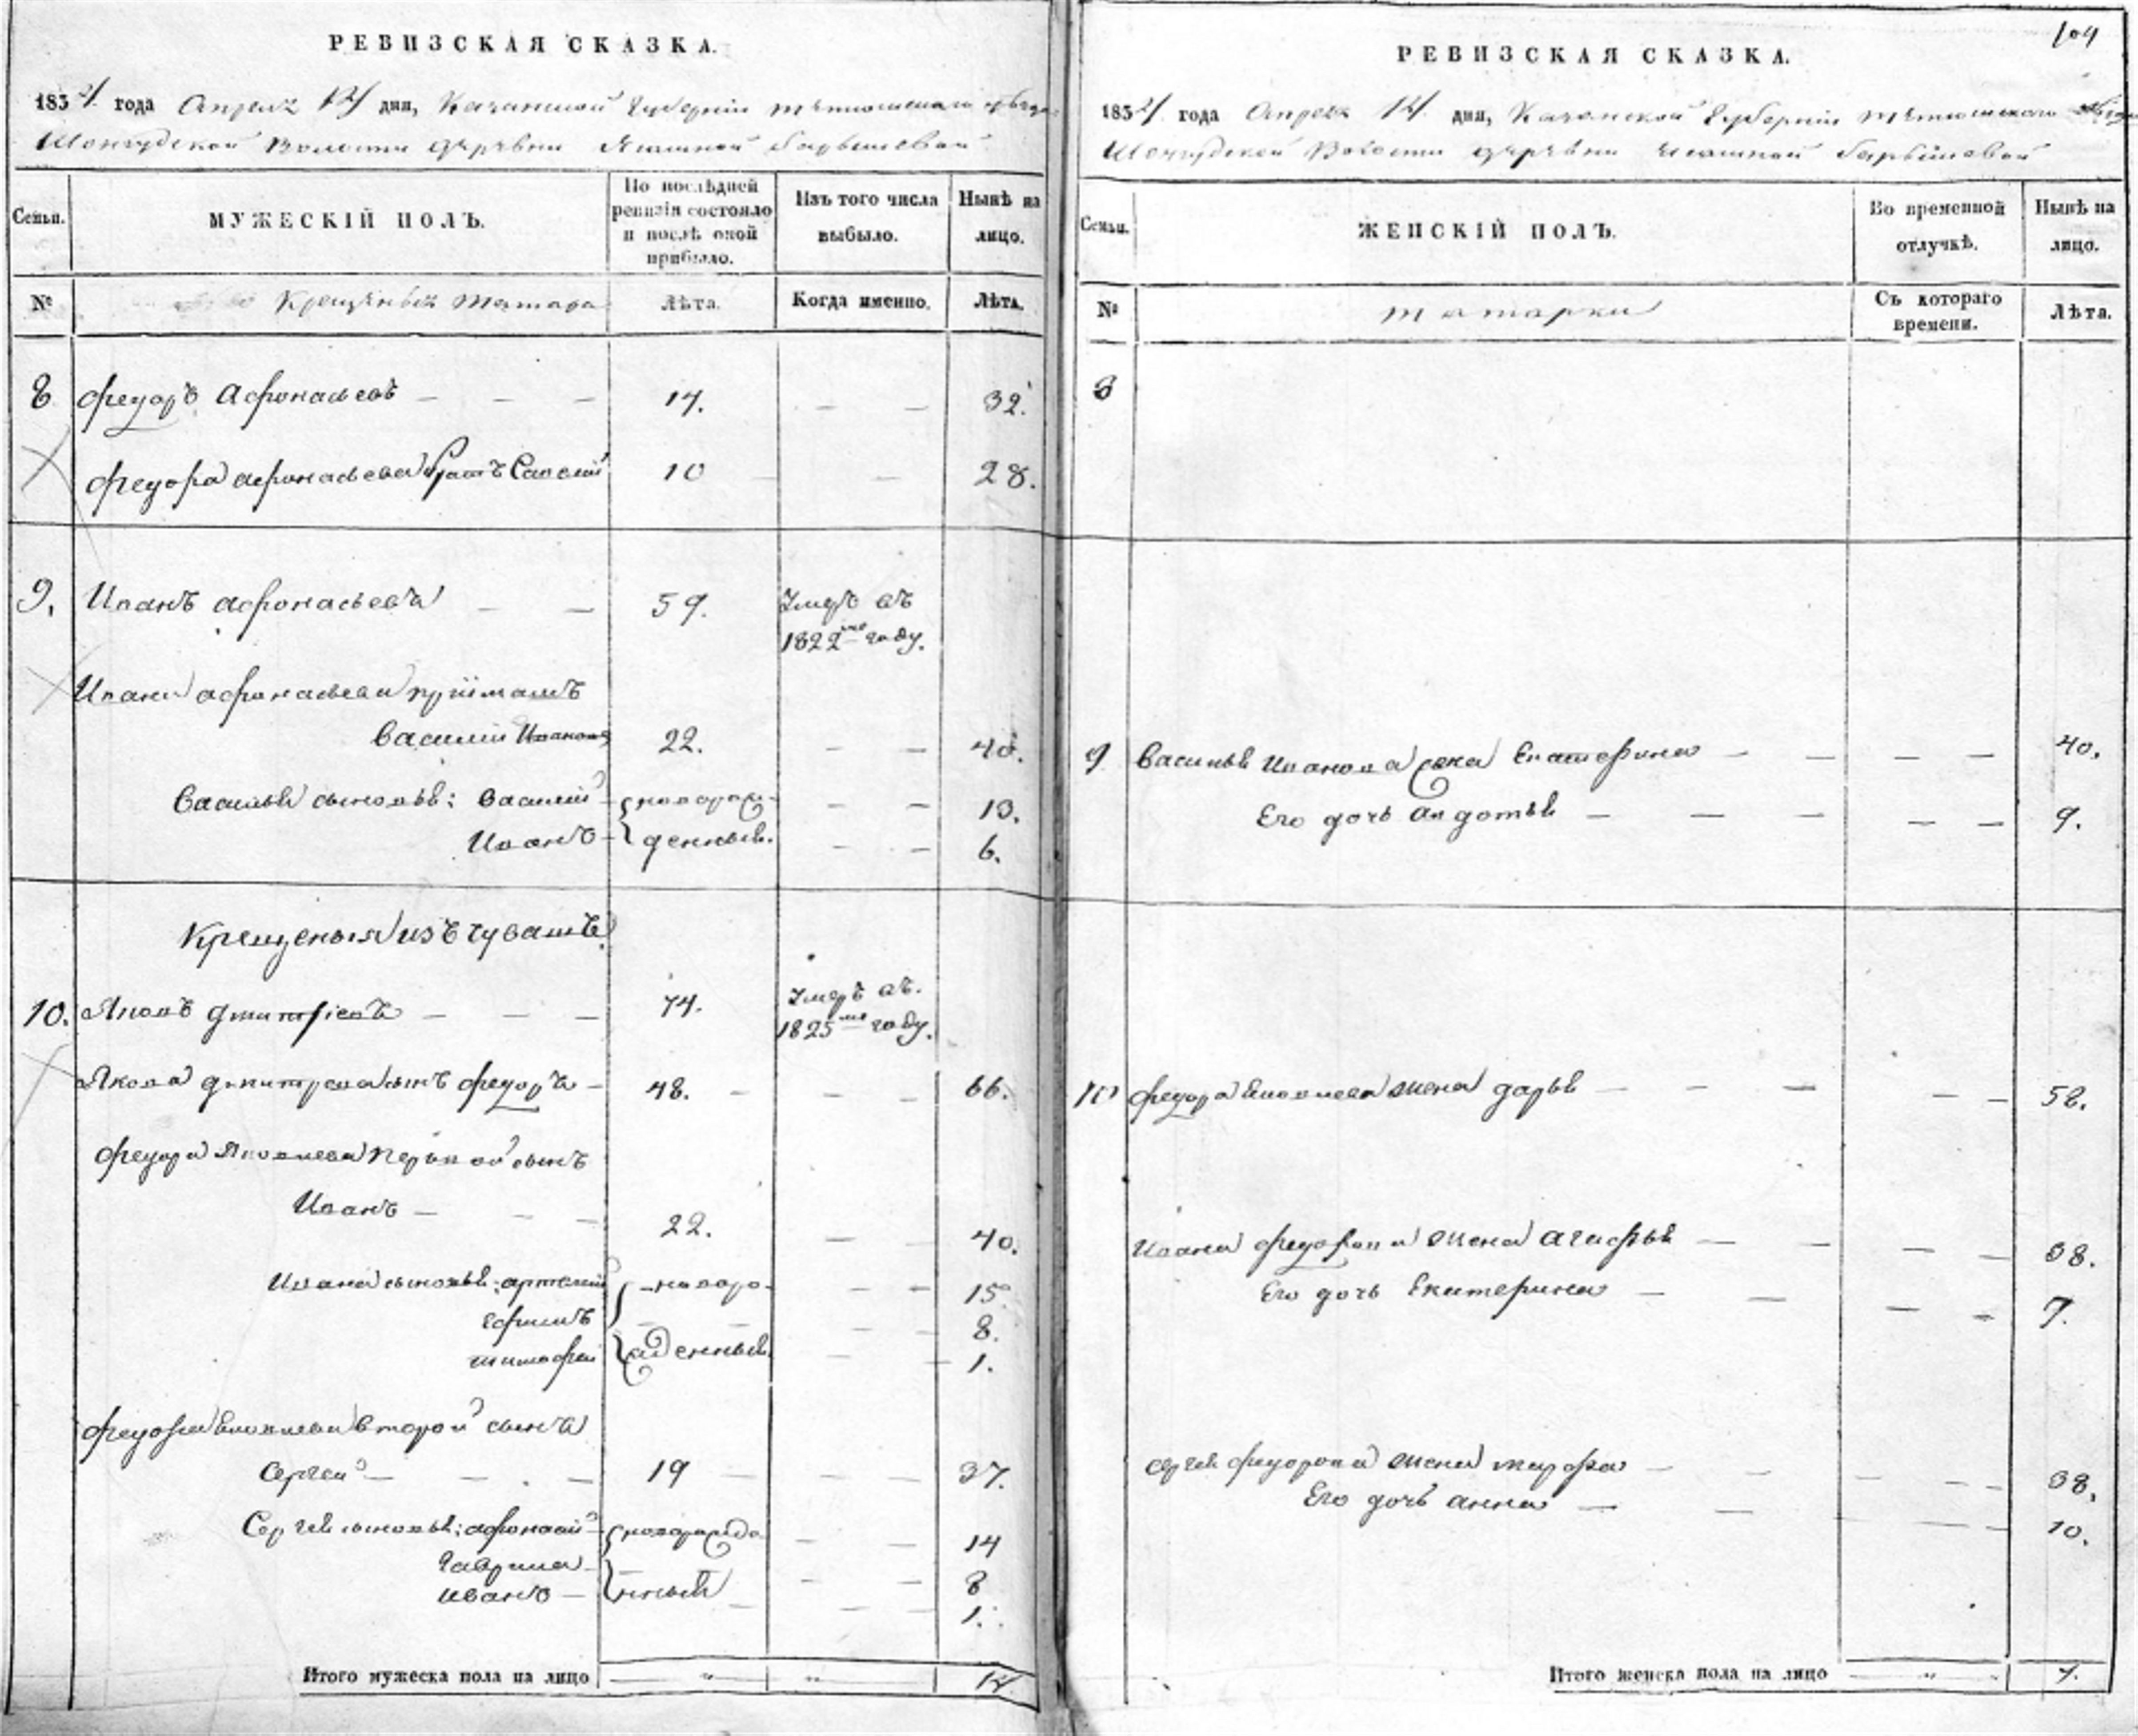 РЕВИЗСКАЯ СКАЗКА.
1834 года Апреля 14 дня, Казанской Губернии Тетюшскаго уезда
Шонгудской Волости деревни
СЕМЬИ.
МУЖЕСКІЙ ПОЛЪ.
По послѣдней ревизіи состояло и послѣ оной прибыло.
Изъ того числа выбыло.
Нынѣ на лицо.
№
Крещеныхъ Татаръ
Лѣта.
Когда именно.
Лѣта.
8 Федоръ Афонасьевъ 14. 32.
Федора Афонасьева братъ Савелий 10 28.
9. Иванъ Афонасьевъ 59. Умеръ въ
1822мъ году.
Ивана Афонасьева приимашъ
Василий Ивановъ 22. 40.
Василья сыновья: Василий новорож- 13.
Иванъ денныя. 6.
Крещеныя изъ чувашъ
10. Яковъ Дмитріевъ 74. Умеръ въ.
1825мъ году.
Якова Дмитрева сынъ Федоръ 48. 66.
Федора Яковлева первой сынъ
Иванъ 22. 40.
Ивана сыновья: Артемий новоро- 15
Ефимъ 8.
Тимофей жденныя. 1.
Федора Яковлева второй сынъ
Сергей 19 37.
Сергея сыновья: Афонасий новорожде 14
Гаврила 8
Иванъ нныя 1.
Итого мужеска пола на лицо 14
104
РЕВИЗСКАЯ СКАЗКА.
1834 года Апреля 14 дня, Казанской Губернии Тетюшскаго уезда
Шонгудской Волости деревни
Семьи.
ЖЕНСКІЙ ПОЛЪ.
Во временной отлучкѣ.
Нынѣ на лицо.
№
Татарки
Съ котораго времени.
Лѣта.
8
9 Василья Иванова жена Екатерина 40.
Его дочь Авдотья 9.
10 Федора Яковлева жена Дарья 58.
Ивана Федорова жена Агафья 38.
Его дочь Екатерина 7.
Сергея Федорова жена Марфа 38,
Его дочь Анна 10.
Итого женска пола на лицо 7.